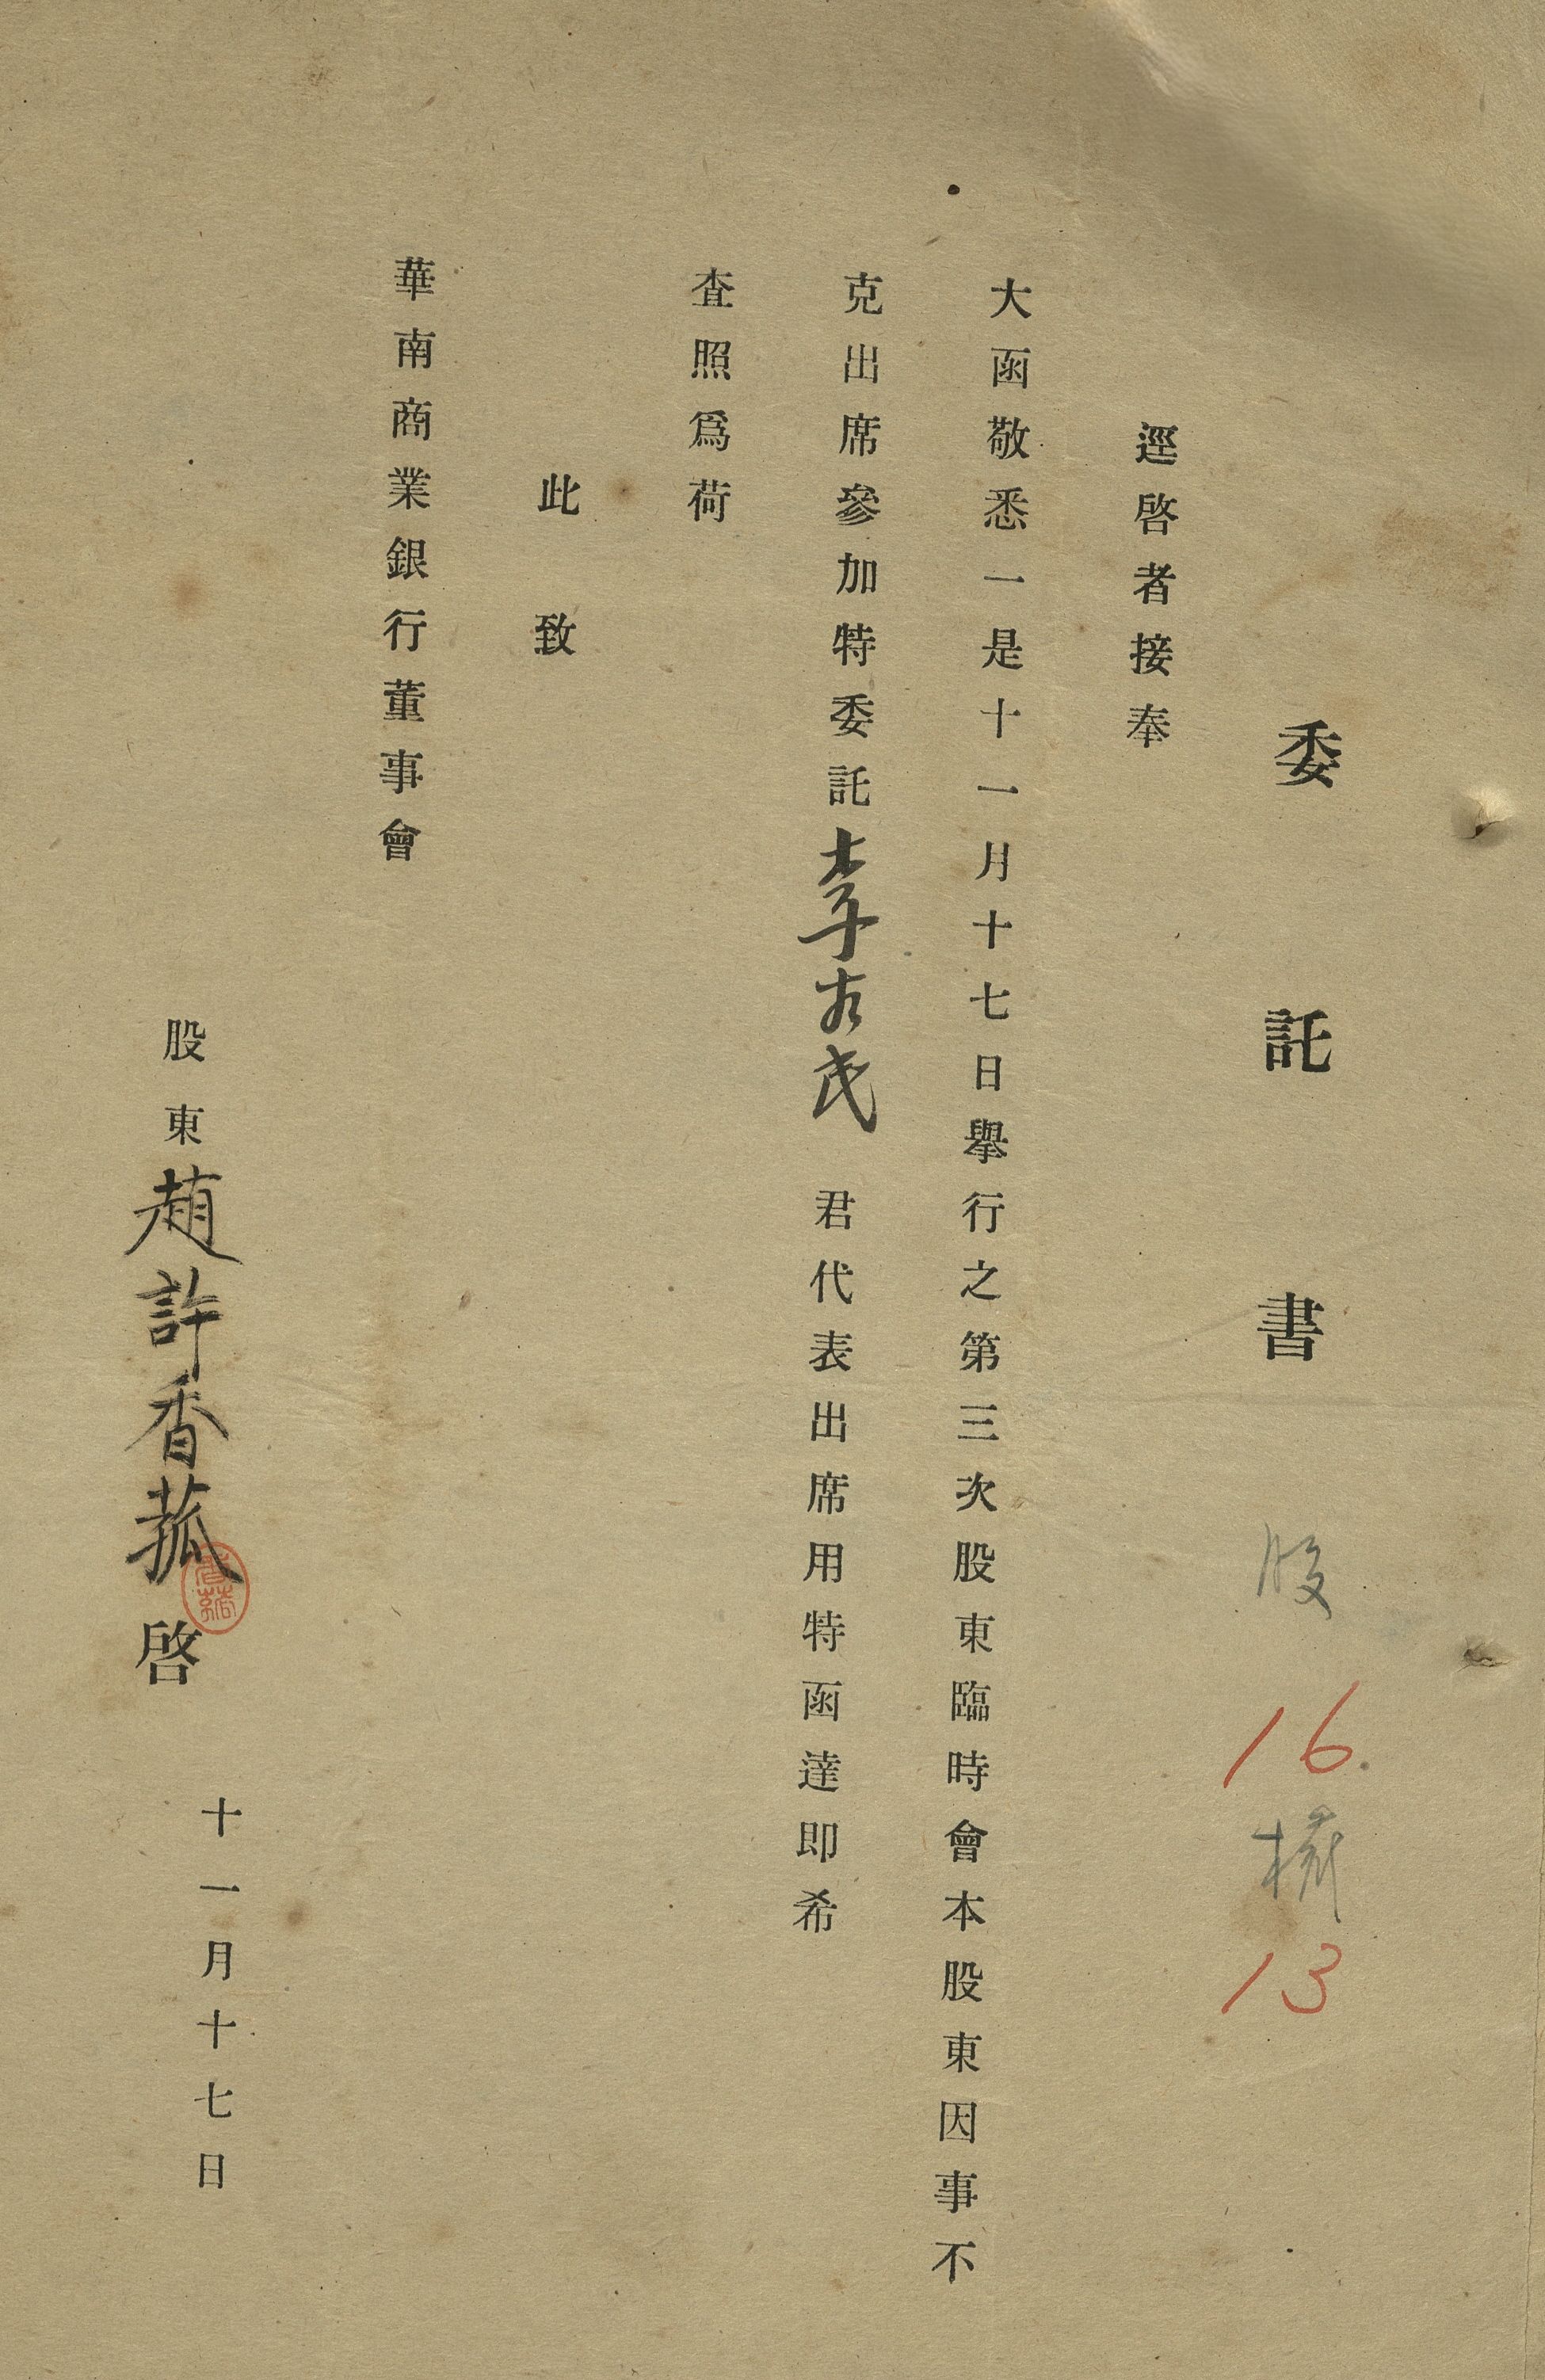 委託書 股 16 權 13
逕啓者接奉
大函敬悉一是十一月十七日擧行之第三次股東臨時會本股東因事不
克出席參加特委託李友民君代表出席用特函達即希
査照爲荷
此致
華南商業銀行董事會
股東趙許香菰啓 十一月十七日